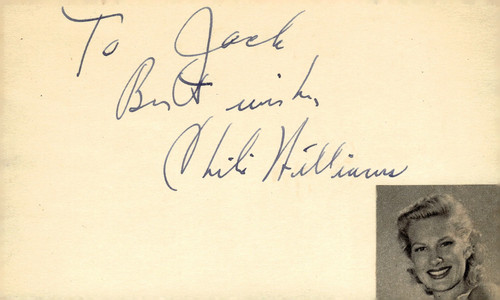 To Jack
Best wishes,
Chili Williams